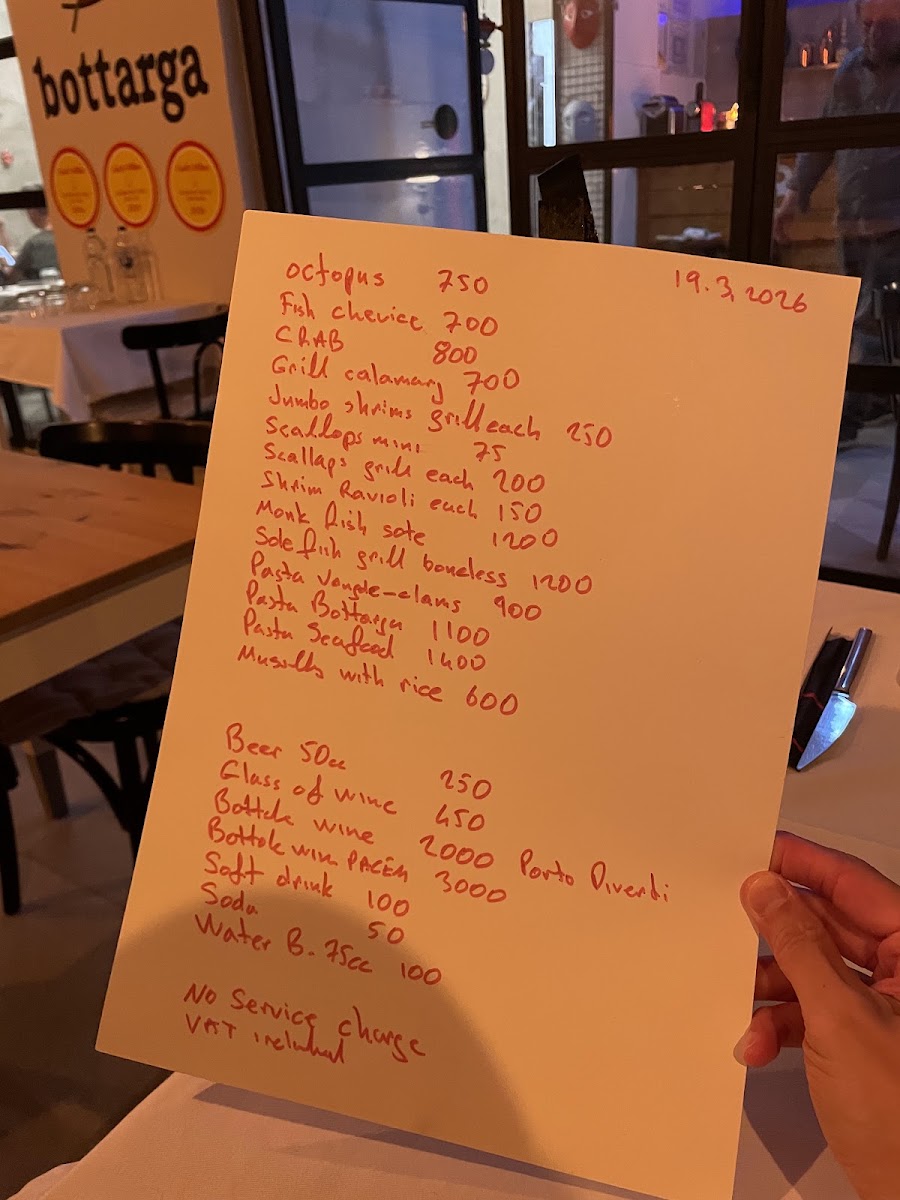 bottarga
19.3.2026
octopus 750
Fish chevice 700
CRAB 800
Grill calamary 700
Jumbo shrims grill each 250
Scallops mini 75
Scallaps grill each 200
Shrim Ravioli each 150
Monk fish sote 1200
Sole fish grill boneless 1200
Pasta Vongole-clams 900
Pasta Bottarga 1100
Pasta Seafood 1400
Mussells with rice 600
Beer 50cc 250
Glass of wine 450
Bottle wine 2000 Porto Diverti
Bottle wine PACEM 3000
Soft drink 100
Soda 50
Water B. 75cc 100
No Service charge
VAT included